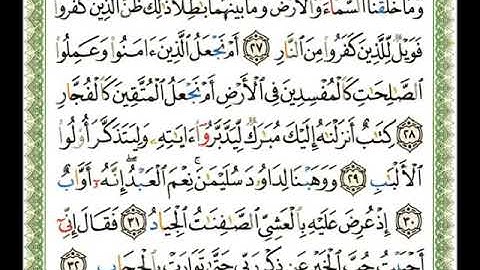 وَمَا خَلَقْنَا السَّمَاءَ وَالْأَرْضَ وَمَا بَيْنَهُمَا بَاطِلًا ذَلِكَ ظَنُّ الَّذِينَ كَفَرُوا
فَوَيْلٌ لِلَّذِينَ كَفَرُوا مِنَ النَّارِ ٢٧ أَمْ نَجْعَلُ الَّذِينَ ءَامَنُوا وَعَمِلُوا
الصَّالِحَاتِ كَالْمُفْسِدِينَ فِي الْأَرْضِ أَمْ نَجْعَلُ الْمُتَّقِينَ كَالْفُجَّارِ
٢٨ كِتَابٌ أَنْزَلْنَاهُ إِلَيْكَ مُبَارَكٌ لِيَدَّبَّرُوا ءَايَاتِهِ وَلِيَتَذَكَّرَ أُولُوا
الْأَلْبَابِ ٢٩ وَوَهَبْنَا لِدَاوُودَ سُلَيْمَانَ نِعْمَ الْعَبْدُ إِنَّهُ أَوَّابٌ
٣٠ إِذْ عُرِضَ عَلَيْهِ بِالْعَشِيِّ الصَّافِنَاتُ الْجِيَادُ ٣١ فَقَالَ إِنِّي
أَحْبَبْتُ حُبَّ الْخَيْرِ عَنْ ذِكْرِ رَبِّي حَتَّى تَوَارَتْ بِالْحِجَابِ ٣٢